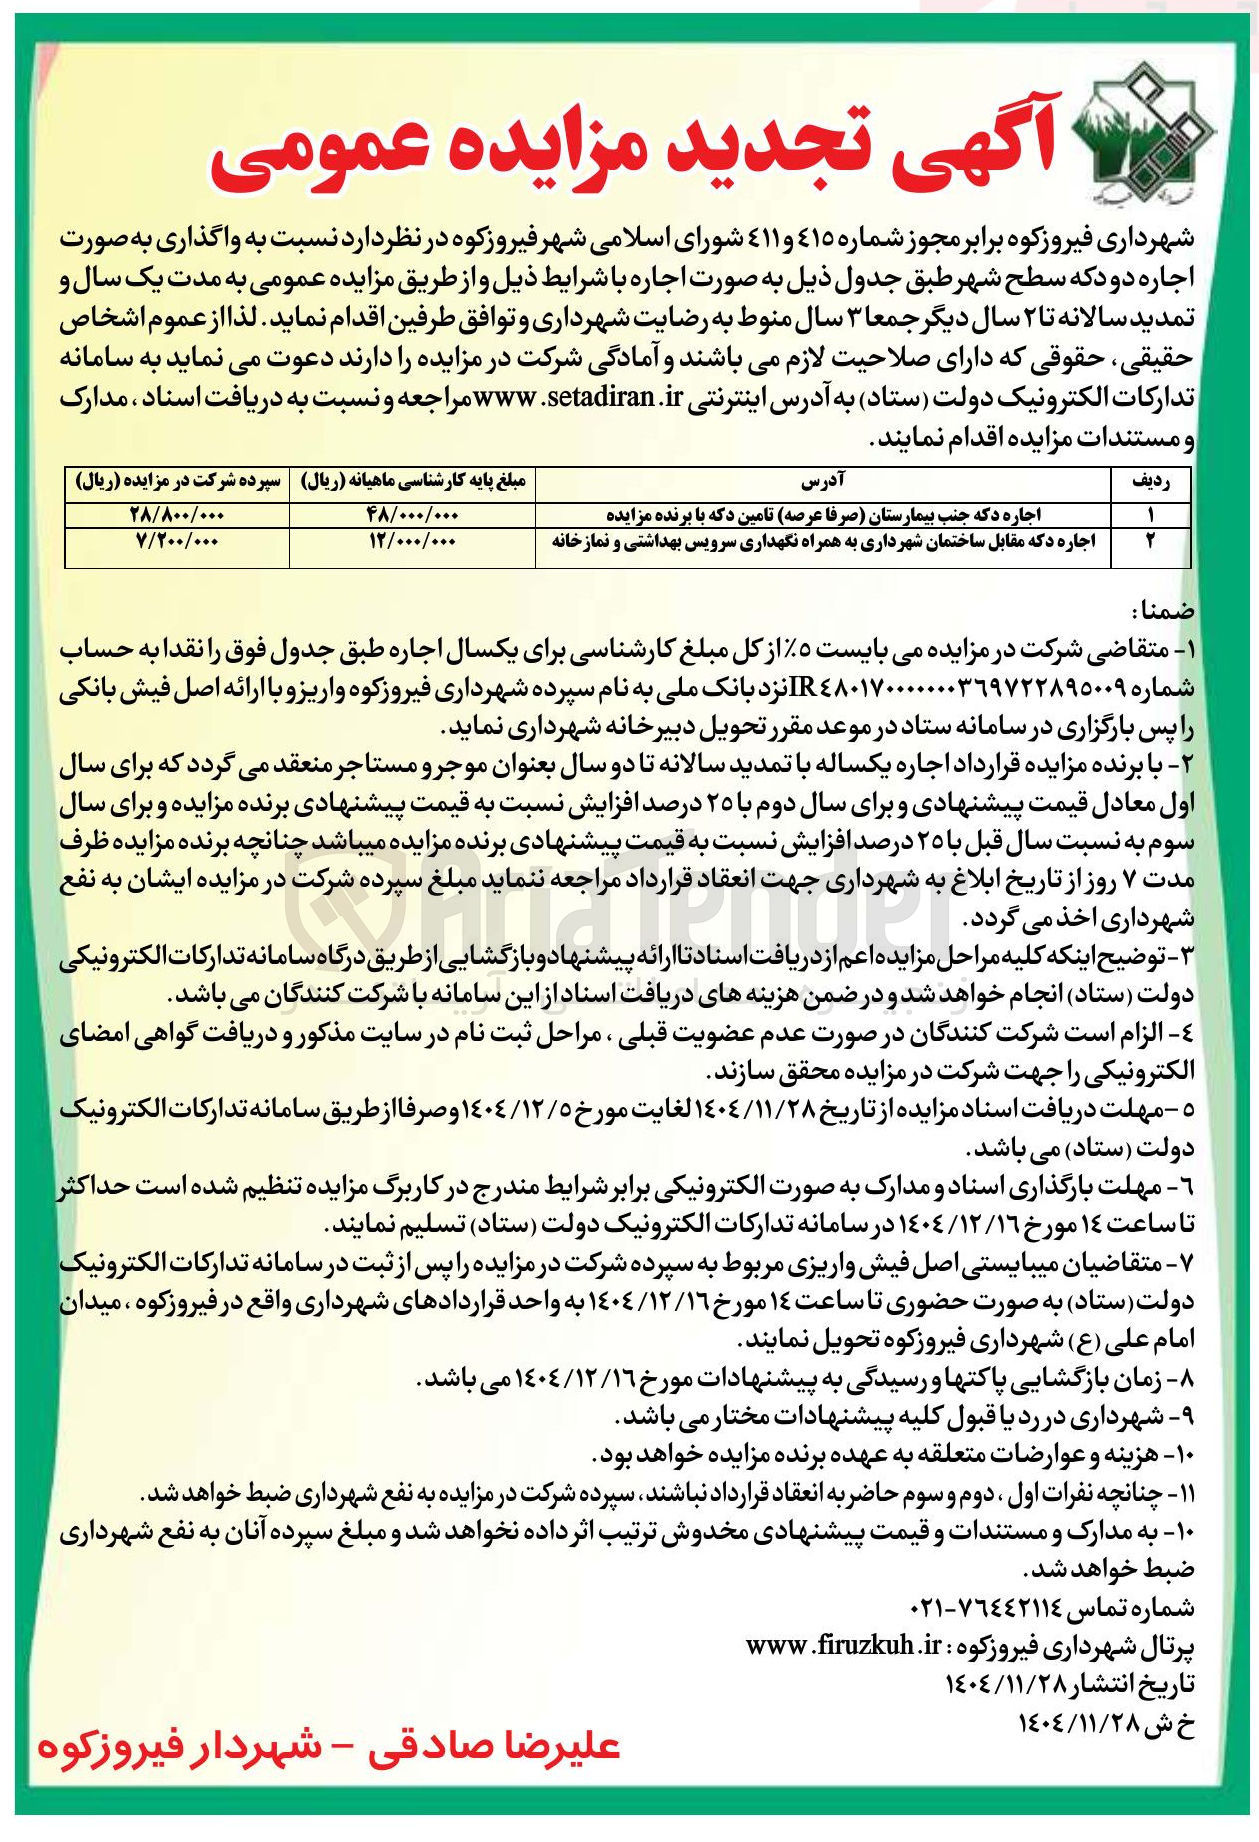 آگهی تجدید مزایده عمومی
شهرداری فیروزکوه برابر مجوز شماره ٤١٥ و ٤١١ شورای اسلامی شهر فیروزکوه در نظر دارد نسبت به واگذاری به صورت
اجاره دو دکه سطح شهر طبق جدول ذیل به صورت اجاره با شرایط ذیل و از طریق مزایده عمومی به مدت یک سال و
تمدید سالانه تا ٢ سال دیگر جمعا ٣ سال منوط به رضایت شهرداری و توافق طرفین اقدام نماید. لذا از عموم اشخاص
حقیقی، حقوقی که دارای صلاحیت لازم می باشند و آمادگی شرکت در مزایده را دارند دعوت می نماید به سامانه
تدارکات الکترونیک دولت (ستاد) به آدرس اینترنتی www.setadiran.ir مراجعه و نسبت به دریافت اسناد، مدارک
و مستندات مزایده اقدام نمایند.
ردیف آدرس مبلغ پایه کارشناسی ماهیانه (ریال) سپرده شرکت در مزایده (ریال)
۱ اجاره دکه جنب بیمارستان (صرفا عرصه) تامین دکه با برنده مزایده ۴۸/۰۰۰/۰۰۰ ۲۸/۸۰۰/۰۰۰
۲ اجاره دکه مقابل ساختمان شهرداری به همراه نگهداری سرویس بهداشتی و نمازخانه ۱۲/۰۰۰/۰۰۰ ۷/۲۰۰/۰۰۰
ضمنا:
١- متقاضی شرکت در مزایده می بایست ٥٪ از کل مبلغ کارشناسی برای یکسال اجاره طبق جدول فوق را نقدا به حساب
شماره IR٤٨٠١٧٠٠٠٠٠٠٠٣٦٩٧٢٢٨٩٥٠٠٩ نزد بانک ملی به نام سپرده شهرداری فیروزکوه واریز و با ارائه اصل فیش بانکی
را پس بارگزاری در سامانه ستاد در موعد مقرر تحویل دبیرخانه شهرداری نماید.
٢- با برنده مزایده قرارداد اجاره یکساله با تمدید سالانه تا دو سال بعنوان موجر و مستاجر منعقد می گردد که برای سال
اول معادل قیمت پیشنهادی و برای سال دوم با ٢٥ درصد افزایش نسبت به قیمت پیشنهادی برنده مزایده و برای سال
سوم به نسبت سال قبل با ٢٥ درصد افزایش نسبت به قیمت پیشنهادی برنده مزایده میباشد چنانچه برنده مزایده ظرف
مدت ٧ روز از تاریخ ابلاغ به شهرداری جهت انعقاد قرارداد مراجعه ننماید مبلغ سپرده شرکت در مزایده ایشان به نفع
شهرداری اخذ می گردد.
AriaTender
٣- توضیح اینکه کلیه مراحل مزایده اعم از دریافت اسناد تا ارائه پیشنهاد و بازگشایی از طریق درگاه سامانه تدارکات الکترونیکی
دولت (ستاد) انجام خواهد شد و در ضمن هزینه های دریافت اسناد از این سامانه با شرکت کنندگان می باشد.
٤- الزام است شرکت کنندگان در صورت عدم عضویت قبلی، مراحل ثبت نام در سایت مذکور و دریافت گواهی امضای
الکترونیکی را جهت شرکت در مزایده محقق سازند.
٥- مهلت دریافت اسناد مزایده از تاریخ ١٤٠٤/١١/٢٨ لغایت مورخ ١٤٠٤/١٢/٥ و صرفا از طریق سامانه تدارکات الکترونیک
دولت (ستاد) می باشد.
٦- مهلت بارگذاری اسناد و مدارک به صورت الکترونیکی برابر شرایط مندرج در کاربرگ مزایده تنظیم شده است حداکثر
تا ساعت ١٤ مورخ ١٤٠٤/١٢/١٦ در سامانه تدارکات الکترونیک دولت (ستاد) تسلیم نمایند.
٧- متقاضیان میبایستی اصل فیش واریزی مربوط به سپرده شرکت در مزایده را پس از ثبت در سامانه تدارکات الکترونیک
دولت (ستاد) به صورت حضوری تا ساعت ١٤ مورخ ١٤٠٤/١٢/١٦ به واحد قراردادهای شهرداری واقع در فیروزکوه، میدان
امام علی (ع) شهرداری فیروزکوه تحویل نمایند.
٨- زمان بازگشایی پاکتها و رسیدگی به پیشنهادات مورخ ١٤٠٤/١٢/١٦ می باشد.
٩- شهرداری در رد یا قبول کلیه پیشنهادات مختار می باشد.
١٠- هزینه و عوارضات متعلقه به عهده برنده مزایده خواهد بود.
١١- چنانچه نفرات اول، دوم و سوم حاضر به انعقاد قرارداد نباشند، سپرده شرکت در مزایده به نفع شهرداری ضبط خواهد شد.
١٠- به مدارک و مستندات و قیمت پیشنهادی مخدوش ترتیب اثر داده نخواهد شد و مبلغ سپرده آنان به نفع شهرداری
ضبط خواهد شد.
شماره تماس ٧٦٤٤٢١١٤-٠٢١
پرتال شهرداری فیروزکوه: www.firuzkuh.ir
تاریخ انتشار ١٤٠٤/١١/٢٨
خ ش ١٤٠٤/١١/٢٨
علیرضا صادقی – شهردار فیروزکوه